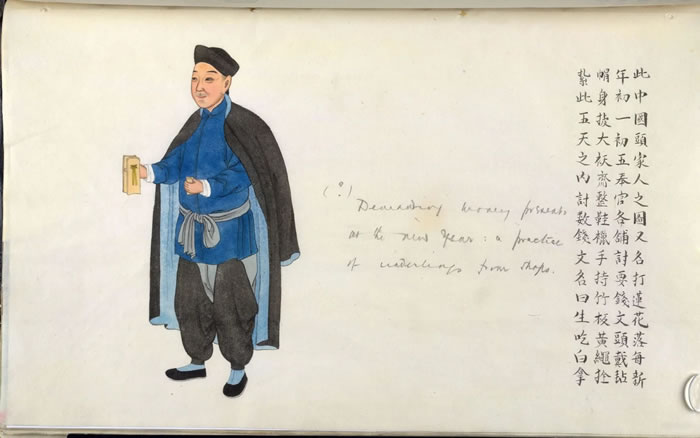 此中國頭家人之圖又名打蓮花落每新
年初一初五奉官各舖討要錢文頭戴毡
帽身披大袄齋整鞋襪手持竹板黃繩拴
紥此五天之內討数錢文名曰生吃白拿
(?)
Demanding money presents
at the new year: a practice
of underlings from shops.